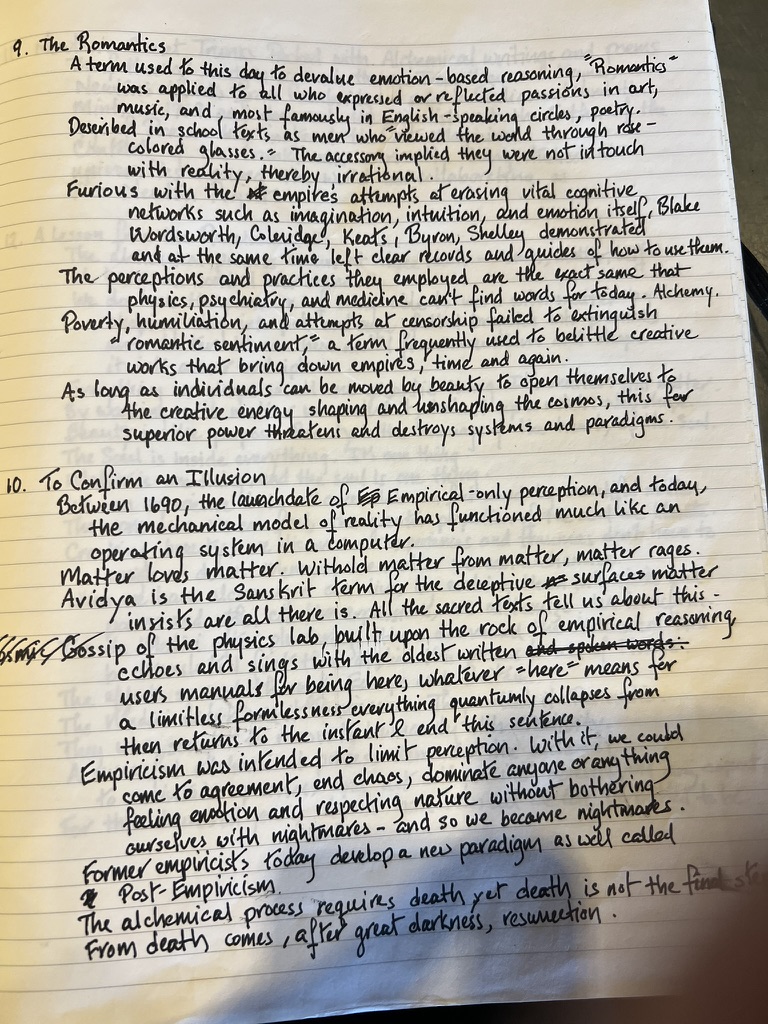 9. The Romantics
A term used to this day to devalue emotion-based reasoning, "Romantics"
was applied to all who expressed or reflected passions in art,
music, and, most famously in English-speaking circles, poetry.
Described in school texts as men who "viewed the world through rose-
colored glasses." The accessory implied they were not in touch
with reality, thereby irrational.
Furious with the empire's attempts at erasing vital cognitive
networks such as imagination, intuition, and emotion itself, Blake
Wordsworth, Coleridge, Keats, Byron, Shelley demonstrated
and at the same time left clear records and guides of how to use them.
The perceptions and practices they employed are the exact same that
physics, psychiatry, and medicine can't find words for today. Alchemy.
Poverty, humiliation, and attempts at censorship failed to extinguish
"romantic sentiment," a term frequently used to belittle creative
works that bring down empires, time and again.
As long as individuals can be moved by beauty to open themselves to
the creative energy shaping and unshaping the cosmos, this far
superior power threatens and destroys systems and paradigms.
10. To Confirm an Illusion
Between 1690, the launchdate of Empirical-only perception, and today,
the mechanical model of reality has functioned much like an
operating system in a computer.
Matter loves matter. Withold matter from matter, matter rages.
Avidya is the Sanskrit term for the deceptive surfaces matter
insists are all there is. All the sacred texts tell us about this-
Gossip of the physics lab, built upon the rock of empirical reasoning,
echoes and sings with the oldest written and spoken words:
users manuals for being here, whatever "here" means for
a limitless formlessness everything quantumly collapses from
then returns to the instant I end this sentence.
Empiricism was intended to limit perception. With it, we could
come to agreement, end chaos, dominate anyone or anything
feeling emotion and respecting nature without bothering
ourselves with nightmares - and so we became nightmares.
Former empiricists today develop a new paradigm as well called
Post-Empiricism.
The alchemical process requires death yet death is not the final
From death comes, after great darkness, resurrection.